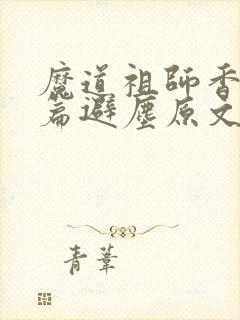 魔道祖師香
篇避塵原文
青葦